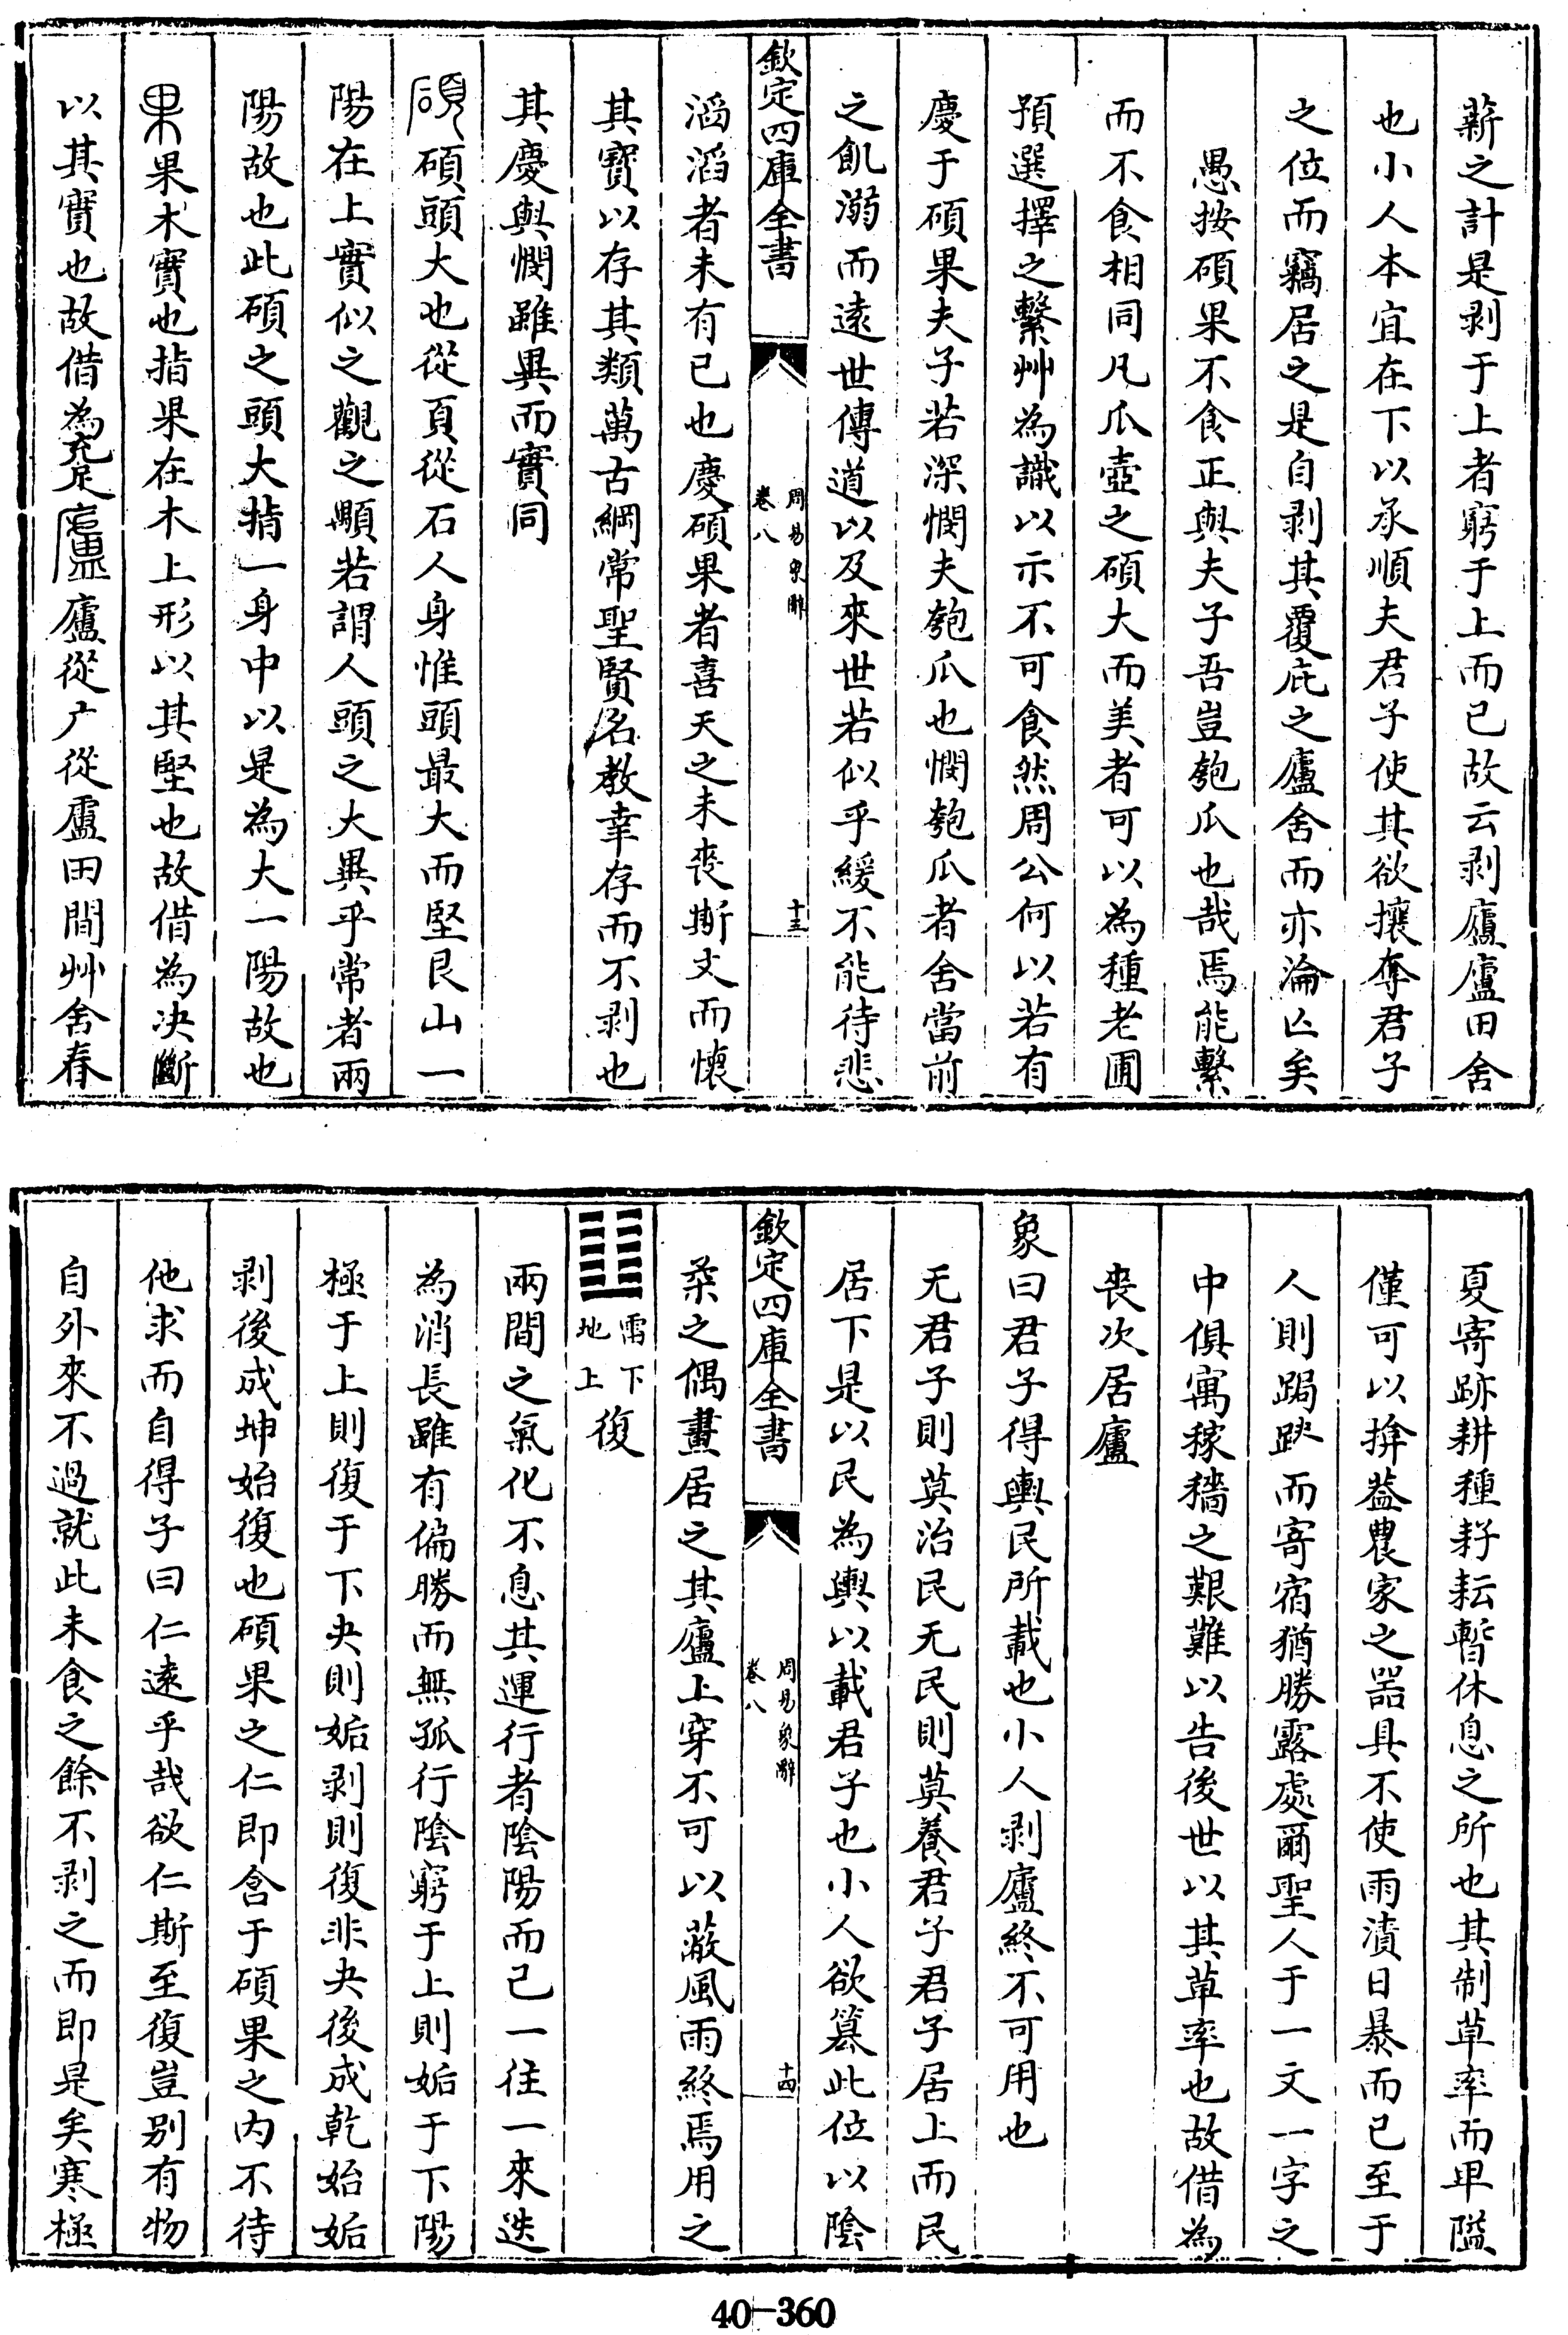 薪之計是剥于上者窮于上而已故云剥廬廬田舍
也小人本宜在下以承順夫君子使其欲攘奪君子
之位而竊居之是自剥其覆庇之廬舍而亦淪亡矣
愚按碩果不食正與夫子吾豈匏瓜也哉焉能繫
而不食相同凡爪壺之碩大而美者可以為種老圃
預選擇之繫艸為識以示不可食然周公何以若有
慶于碩果夫子若深憫夫匏瓜也憫匏瓜者舍當前
之飢溺而遠世傳道以及來世若似乎緩不能待悲
欽定四庫全書
周易象辭
卷八
十三
滔滔者未有已也慶碩果者喜天之未喪斯文而懷
其寳以存其類萬古綱常聖賢名教幸存而不剥也
其慶與憫雖異而實同
碩碩頭大也從頁從石人身惟頭最大而堅艮山一
陽在上實似之觀之顒若謂人頭之大異乎常者兩
陽故也此碩之頭大指一身中以是為大一陽故也
果果木實也指果在木上形以其堅也故借為决斷
以其實也故借為充足廬廬從广從盧田間艸舍春
夏寄跡耕種耔耘暫休息之所也其制草率而卑隘
僅可以揜葢農家之噐具不使雨漬日暴而已至于
人則跼蹐而寄宿猶勝露處爾聖人于一文一字之
中俱寓稼穡之艱難以告後世以其草率也故借為
喪次居廬
象曰君子得輿民所載也小人剥廬終不可用也
无君子則莫治民无民則莫養君子君子居上而民
居下是以民為輿以載君子也小人欲簒此位以陰
欽定四庫全書
周易象辭
卷八
十四
柔之偶畫居之其廬上穿不可以蔽風雨終焉用之
䷗雷下地上復
兩間之氣化不息其運行者陰陽而已一往一來迭
為消長雖有偏勝而無孤行陰窮于上則姤于下陽
極于上則復于下夬則姤剥則復非夬後成乾始姤
剥後成坤始復也碩果之仁即含于碩果之内不待
他求而自得子曰仁遠乎哉欲仁斯至復豈别有物
自外來不過就此未食之餘不剥之而即是矣寒極
40-360